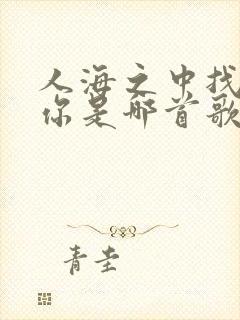 人海之中找
你是哪首歌
青圭